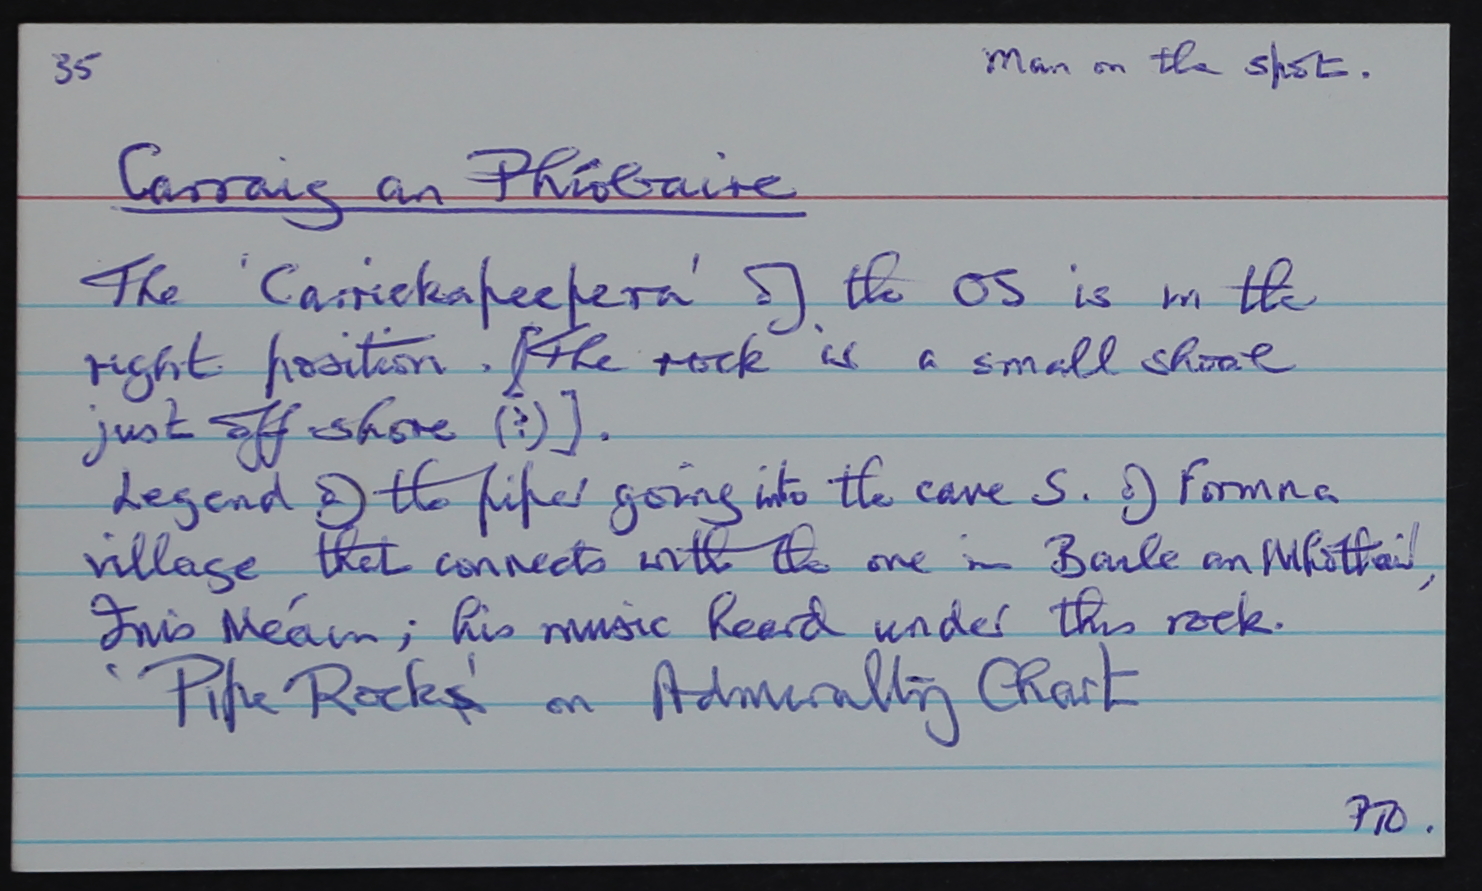 35
Man on the spot.
Carraig an Phíobaire
The 'Carrickapeepera' of the OS is in the
right position. [The rock is a small shoal
just off-shore (?)].
Legend of the piper going into the cave S. of Formna
village that connects with the one in Baile an Mhothair,
Inis Meáin; his music heard under this rock.
'Pipe Rocks' on Admiralty Chart
PTO.